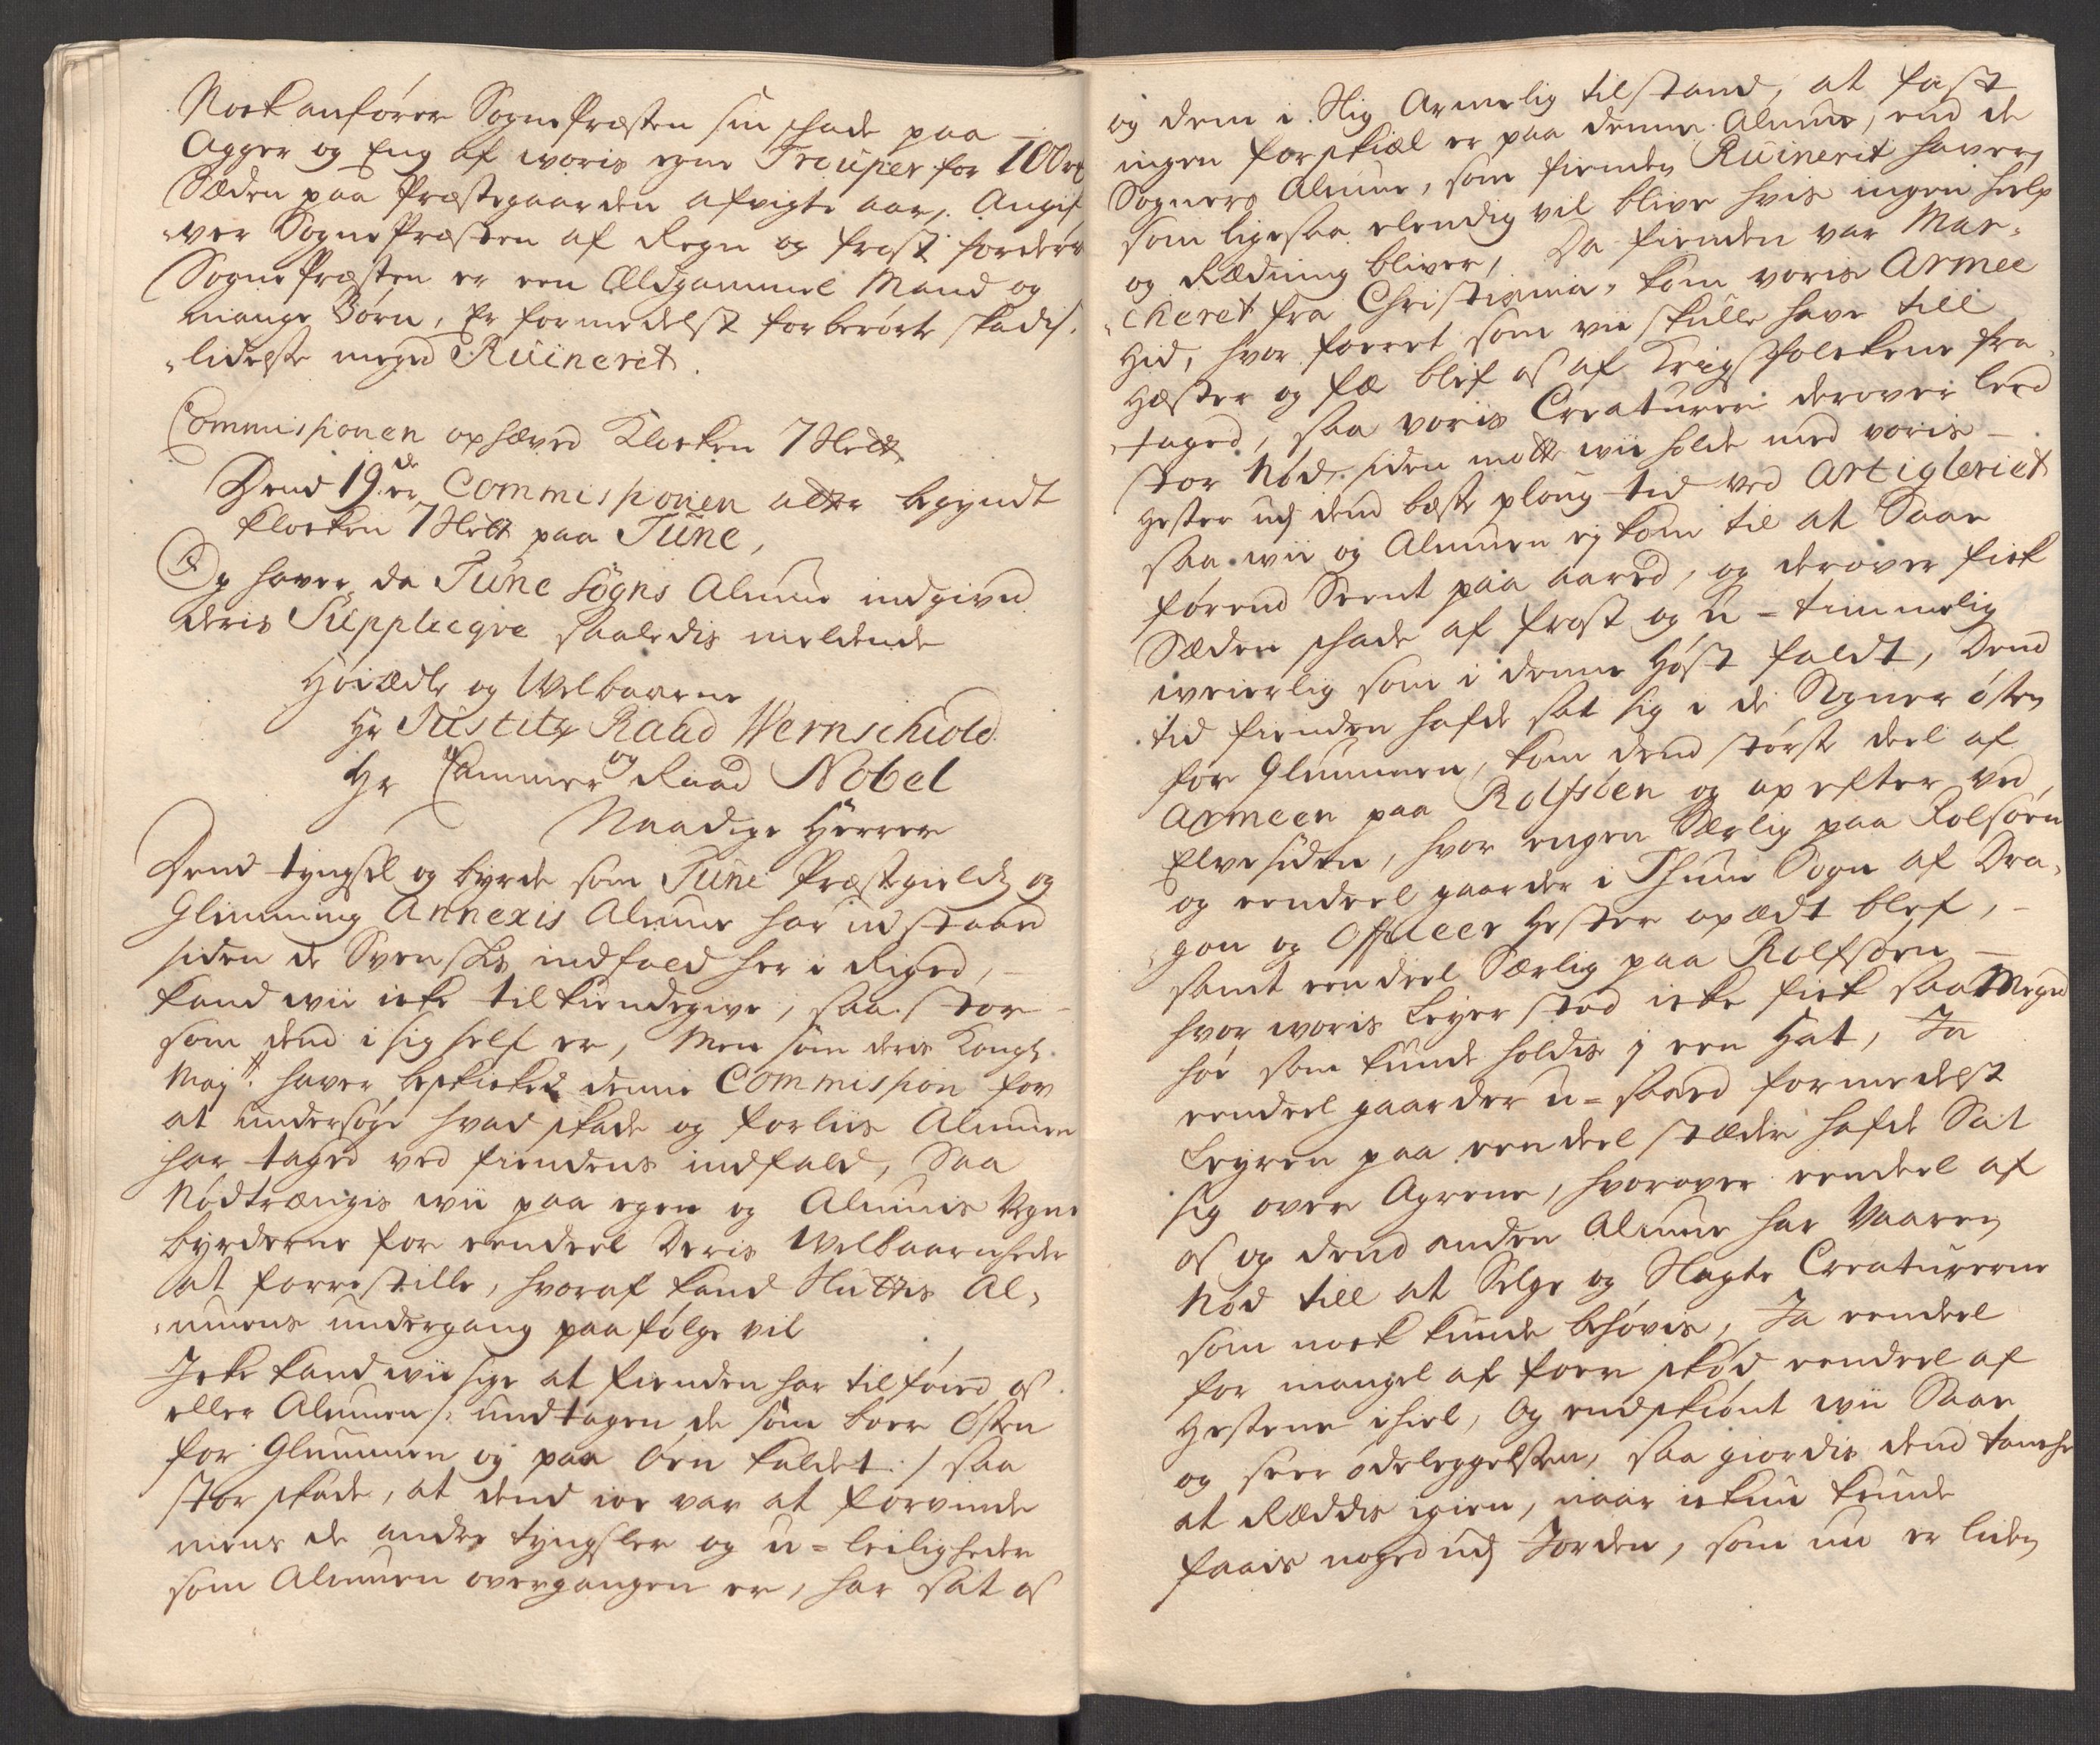 Nock anfører Sognepræsten sin schade paa
Agger og Eng af woris egne Trouper for 100 rd
Sæden paa Præstegaarden afvigte aar, Angif
„ver Sognepræsten af Regn og frost fordervet
Sognepræsten er een Eldgammel Mand og
mange Børn, Er formedelst forberørte skadis
„lidelse meged Ruineret.
Commissionen ophæved Klocken 7 Slett
Dend 19de er Commissionen atter begyndt
Klocken 7 Slett paa Tune,
Og haver da Tune Sogns Almue indgived
deris Supplicqve saaledis meldende
Høiædle og Welbaarne
Hr Justitz Raad Wernschiold
og
Hr Cammer Raad Nobel
Naadige Herrer
Dend tyngsel og byrde som Tune Præstegields og
Glimming Annexis Almue har udstaaed
siden de Svenskes indfald her i Riged,
kand wii icke tilkiendegive, saa stor
som dend i sig self er, Men som deris Kongl.
Maytt. haver beskicked denne Commission for
at undersøge hvad skade og forliis Almuen
har taged ved fiendens indfald, Saa
Nødtrængis wii paa egen og Almuis Vegne
byrderne for eendeel Deris Welbaarenheder
at forrestille, hvoraf kand sluttis Al„
„muens undergang paafølge vil
Icke kand wii sige at fienden har tilføied os
eller Almuen /: undtagen de som boer Østen
for Glummen og paa Øen kaldet :/ saa
stor skade, at dend ioe var at forvinde
mens de andre tyngsler og u-leiligheder
som Almuen overgangen er, har sat os
og dem i Slig Armelig tilstand, at fast
ingen forskiæl er paa denne Almue, end de
Sogners Almue, som fienden Ruinerit haver,
som ligesaa elendig vil blive hvis ingen hielp
og Rædning bliver, Da fienden var Mar„
„cheret fra Christiania, kom voris Armee
hid, hvor forret som vii skulle have till
Hæster og fæ blef os af Krigsfolckene fra
„taged, saa voris Creaturer derover leed
stor Nød, siden motte wii holde med voris
Hester udj dend beste ploug tid ved Artigleriet
saa wii og Almuen ej kom til at Saae
førend Seent paa aared, og derover fick
Sæden schade af frost og u-timmelig
weierlig som i denne Høst faldt, Dend
tid fienden hafde sat sig i de Sogner østen
for Glummen, kom dend største deel af
Armeen paa Rolfsøen og op efter ved
Elvesiden, hvor engen Særlig paa Rolsøen
og eendeel gaarder i Thune Sogn af Dra„
„gon og Officeer Hester opædt blef,
samt eendeel Særlig paa Rolfsøen
hvor woris Leyer stod icke fick saa Meged
høe som kunde holdis j een Hat, Ja
eendeel gaarder u-saaed formedelst
Leyren paa eendeel stæder hafde Sat
sig over Agrene, hvorover eendeel af
os og dend anden Almue har Vaaren
Nød till at Selge og Slagte Creaturerne
som nock kunde behøves, Ja eendeel
for mangel af foer skød eendeel af
Hestene ihiel, Og endskiønt wii Saae
og seer ødeleggelsen, saa giordis dend tancke
at Ræddis igien, naar ickun kunde
faais noged udj Jorden, som nu er liden